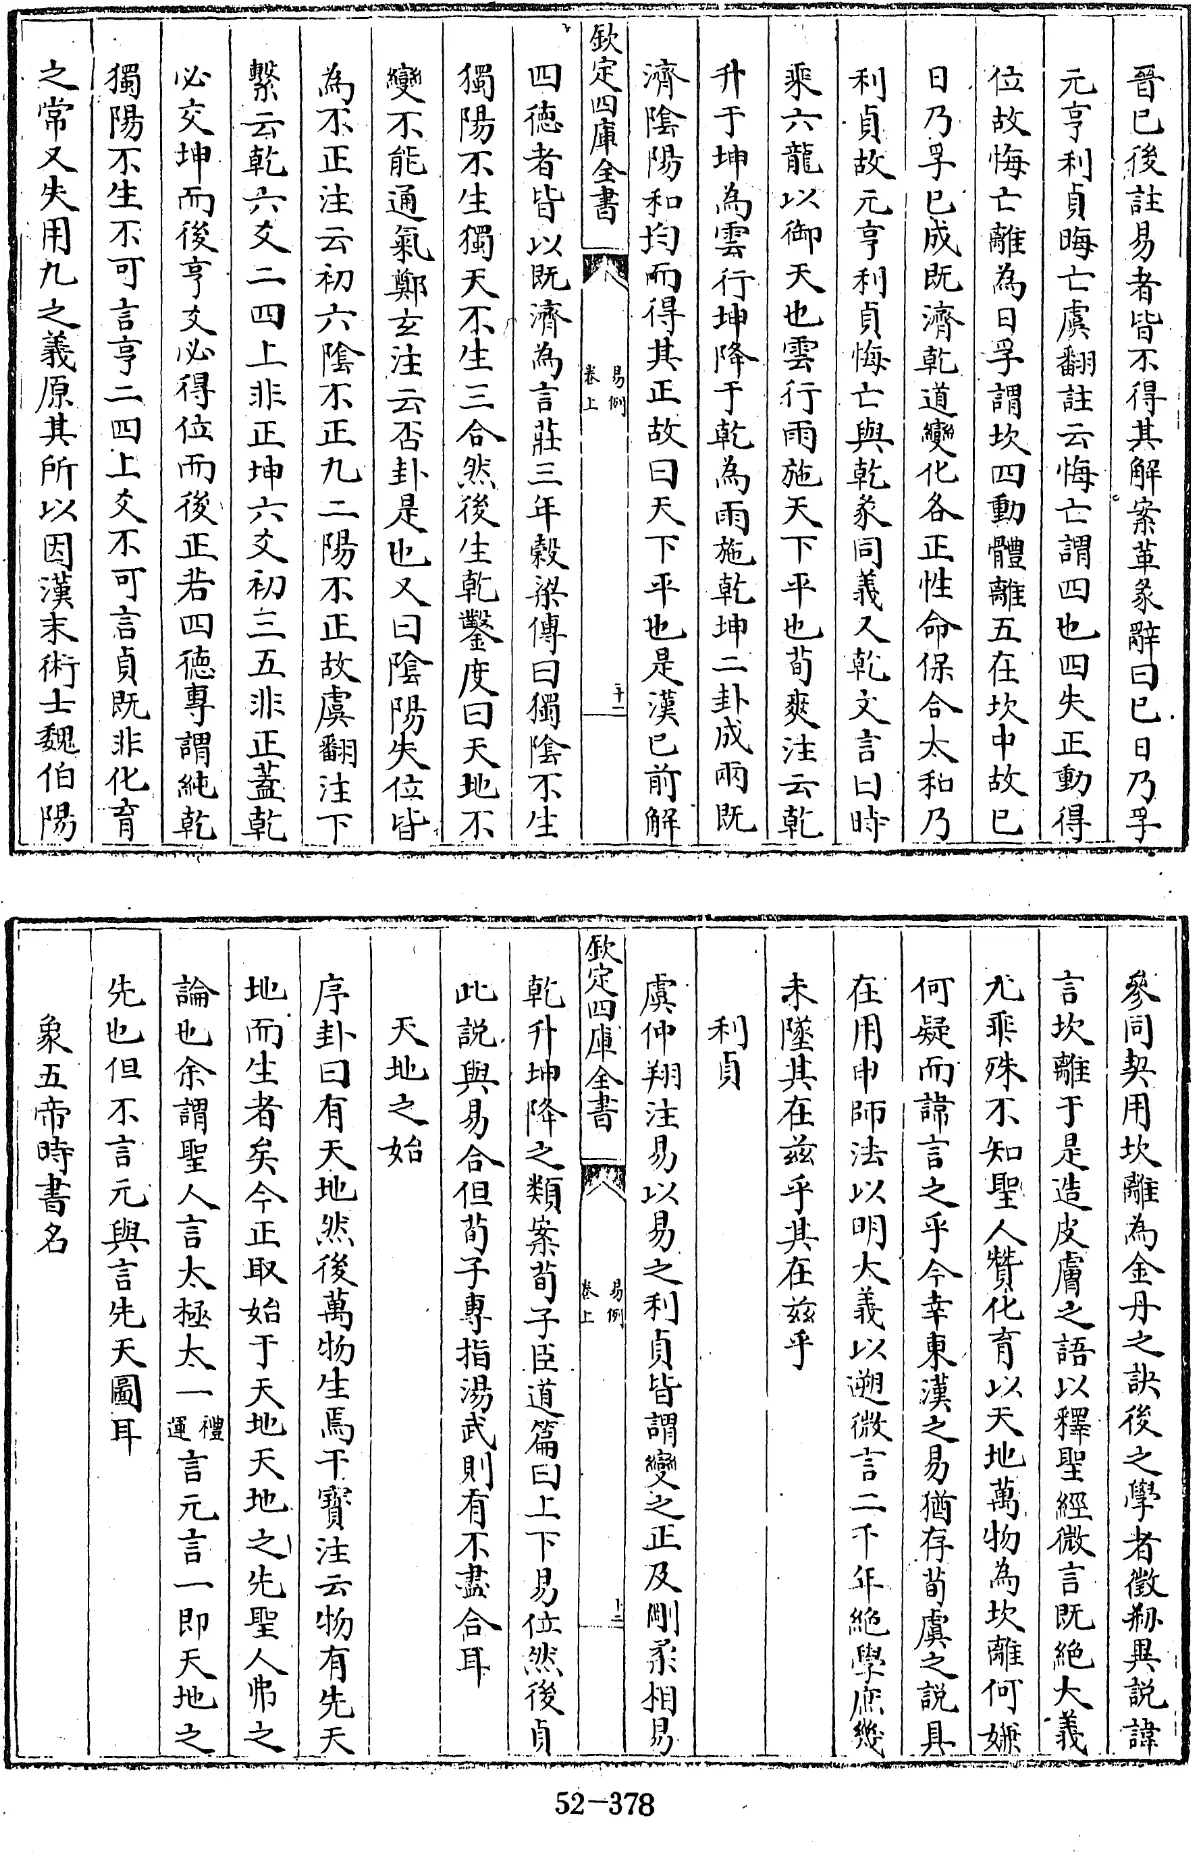 晉已後註易者皆不得其解案革彖辭曰已日乃孚
元亨利貞晦亡虞翻註云悔亡謂四也四失正動得
位故悔亡離為日孚謂坎四動體離五在坎中故已
日乃孚已成既濟乾道變化各正性命保合太和乃
利貞故元亨利貞悔亡與乾彖同義又乾文言曰時
乘六龍以御天也雲行雨施天下平也荀爽注云乾
升于坤為雲行坤降于乾為雨施乾坤二卦成兩既
濟陰陽和均而得其正故曰天下平也是漢已前解
欽定四庫全書
易例
卷上
十一
四徳者皆以既濟為言莊三年穀梁傳曰獨陰不生
獨陽不生獨天不生三合然後生乾鑿度曰天地不
變不能通氣鄭玄注云否卦是也又曰陰陽失位皆
為不正注云初六陰不正九二陽不正故虞翻注下
繫云乾六爻二四上非正坤六爻初三五非正蓋乾
必交坤而後亨爻必得位而後正若四徳專謂純乾
獨陽不生不可言亨二四上爻不可言貞既非化育
之常又失用九之義原其所以因漢末術士魏伯陽
參同契用坎離為金丹之訣後之學者徵剏異説諱
言坎離于是造皮膚之語以釋聖經微言既絶大義
尤乖殊不知聖人贊化育以天地萬物為坎離何嫌
何疑而諱言之乎今幸東漢之易猶存荀虞之説具
在用申師法以明大義以遡微言二千年絶學庶幾
未墜其在兹乎其在兹乎
利貞
虞仲翔注易以易之利貞皆謂變之正及剛柔相易
欽定四庫全書
易例
卷上
十二
乾升坤降之類案荀子臣道篇曰上下易位然後貞
此説與易合但荀子專指湯武則有不盡合耳
天地之始
序卦曰有天地然後萬物生焉干寶注云物有先天
地而生者矣今正取始于天地天地之先聖人弗之
論也余謂聖人言太極太一禮運言元言一即天地之
先也但不言元與言先天圖耳
象五帝時書名
52-378